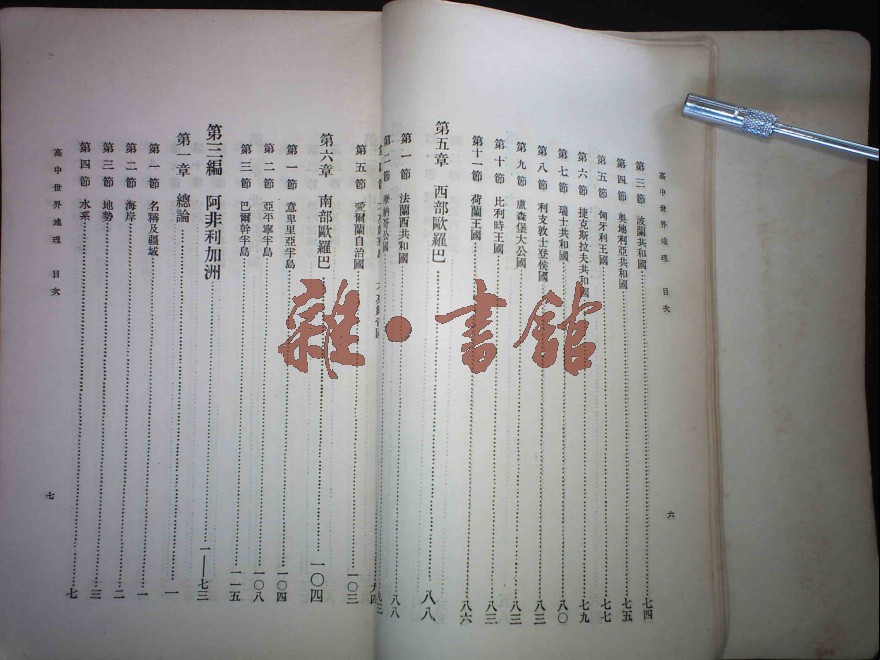 高中世界地理 目次
第三節 波蘭共和國 七四
第四節 奧地利亞共和國 七五
第五節 匈牙利王國 七七
第六節 捷克斯拉夫共和國 七九
第七節 瑞士共和國 八〇
第八節 利支敦士登侯國 八三
第九節 盧森堡大公國 八三
第十節 比利時王國 八三
第十一節 荷蘭王國 八六
第五章 西部歐羅巴 八八
第一節 法蘭西共和國 八八
第二節 摩納哥公國
第五節 愛爾蘭自治國 一〇三
第六章 南部歐羅巴 一〇四
第一節 意卑里亞半島 一〇四
第二節 亞平寧半島 一〇八
第三節 巴爾幹半島 一一五
第三編 阿非利加洲 一——七三
第一章 總論 一
第一節 名稱及疆域 一
第二節 海岸 二
第三節 地勢 三
第四節 水系 七
高中世界地理 目次
六
七
雜·書館